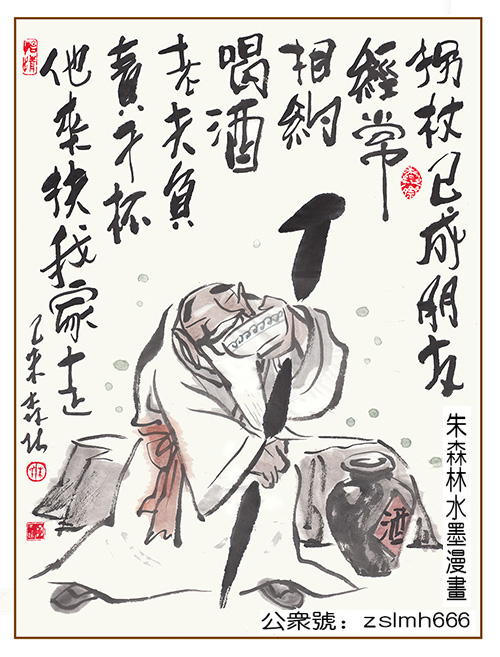 拐杖已成朋友
經常
相約
喝酒
老夫負
責干杯
他來扶我家走
乙未森林
酒
朱森林水墨漫畫
公衆號：zslmh666